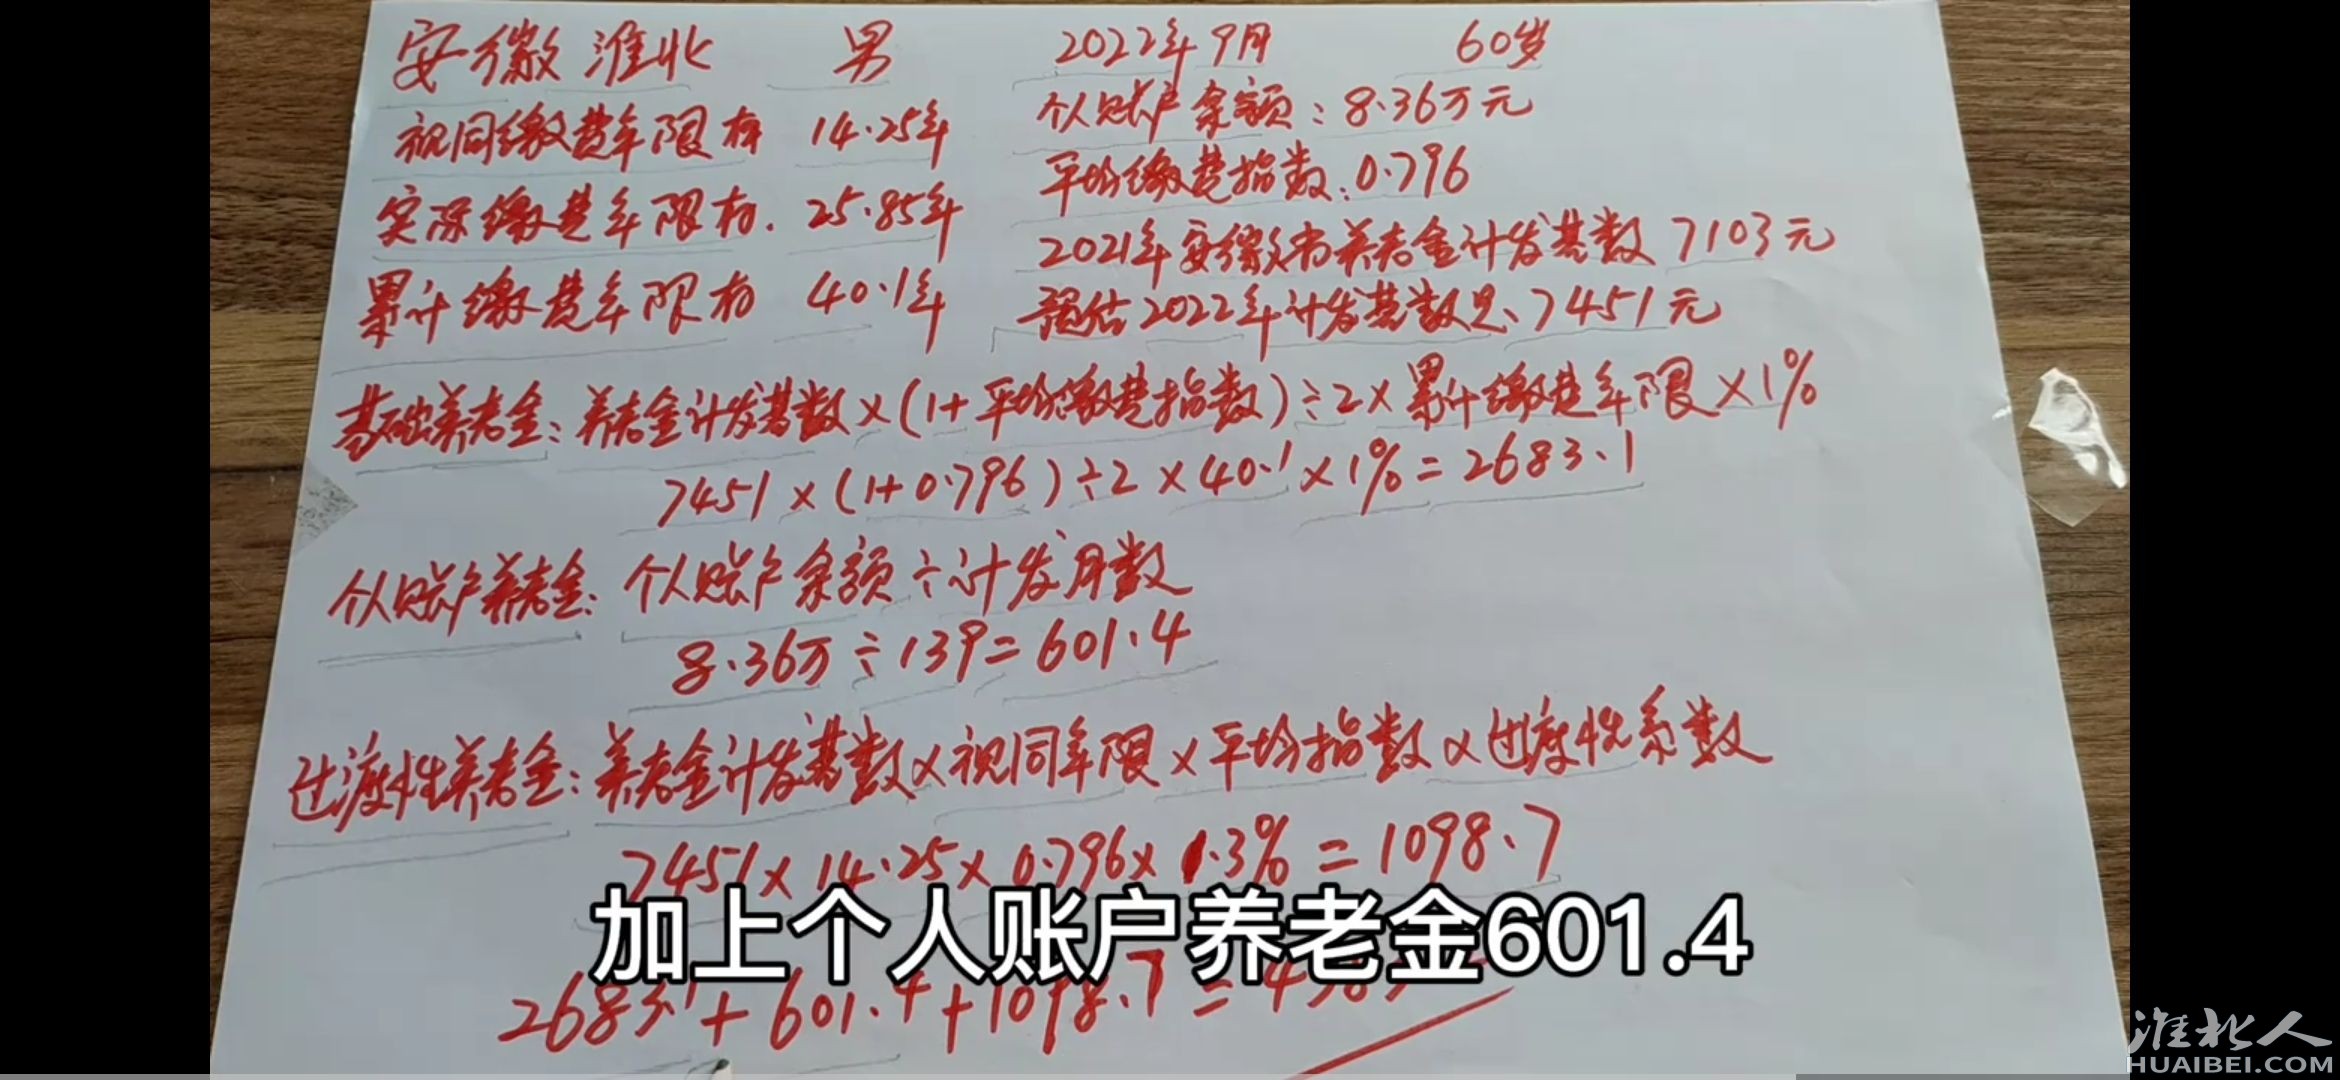 安徽 淮北 男 2022年9月 60岁
视同缴费年限有 14.25年
实际缴费年限有. 25.85年
累计缴费年限有 40.1年
个人账户余额：8.36万元
平均缴费指数：0.796
2021年安徽省养老金计发基数 7103元
预估2022年计发基数是、7451元
基础养老金：养老金计发基数×(1+平均缴费指数)÷2×累计缴费年限×1%
7451×(1+0.796)÷2×40.1×1%=2683.1
个人账户养老金：个人账户余额÷计发月数
8.36万÷139=601.4
过渡性养老金：养老金计发基数×视同年限×平均指数×过渡性系数
7451×14.25×0.796×1.3%=1098.7
加上个人账户养老金601.4
2683.1+601.4+1098.7=
淮北人
HUAIBEI.COM